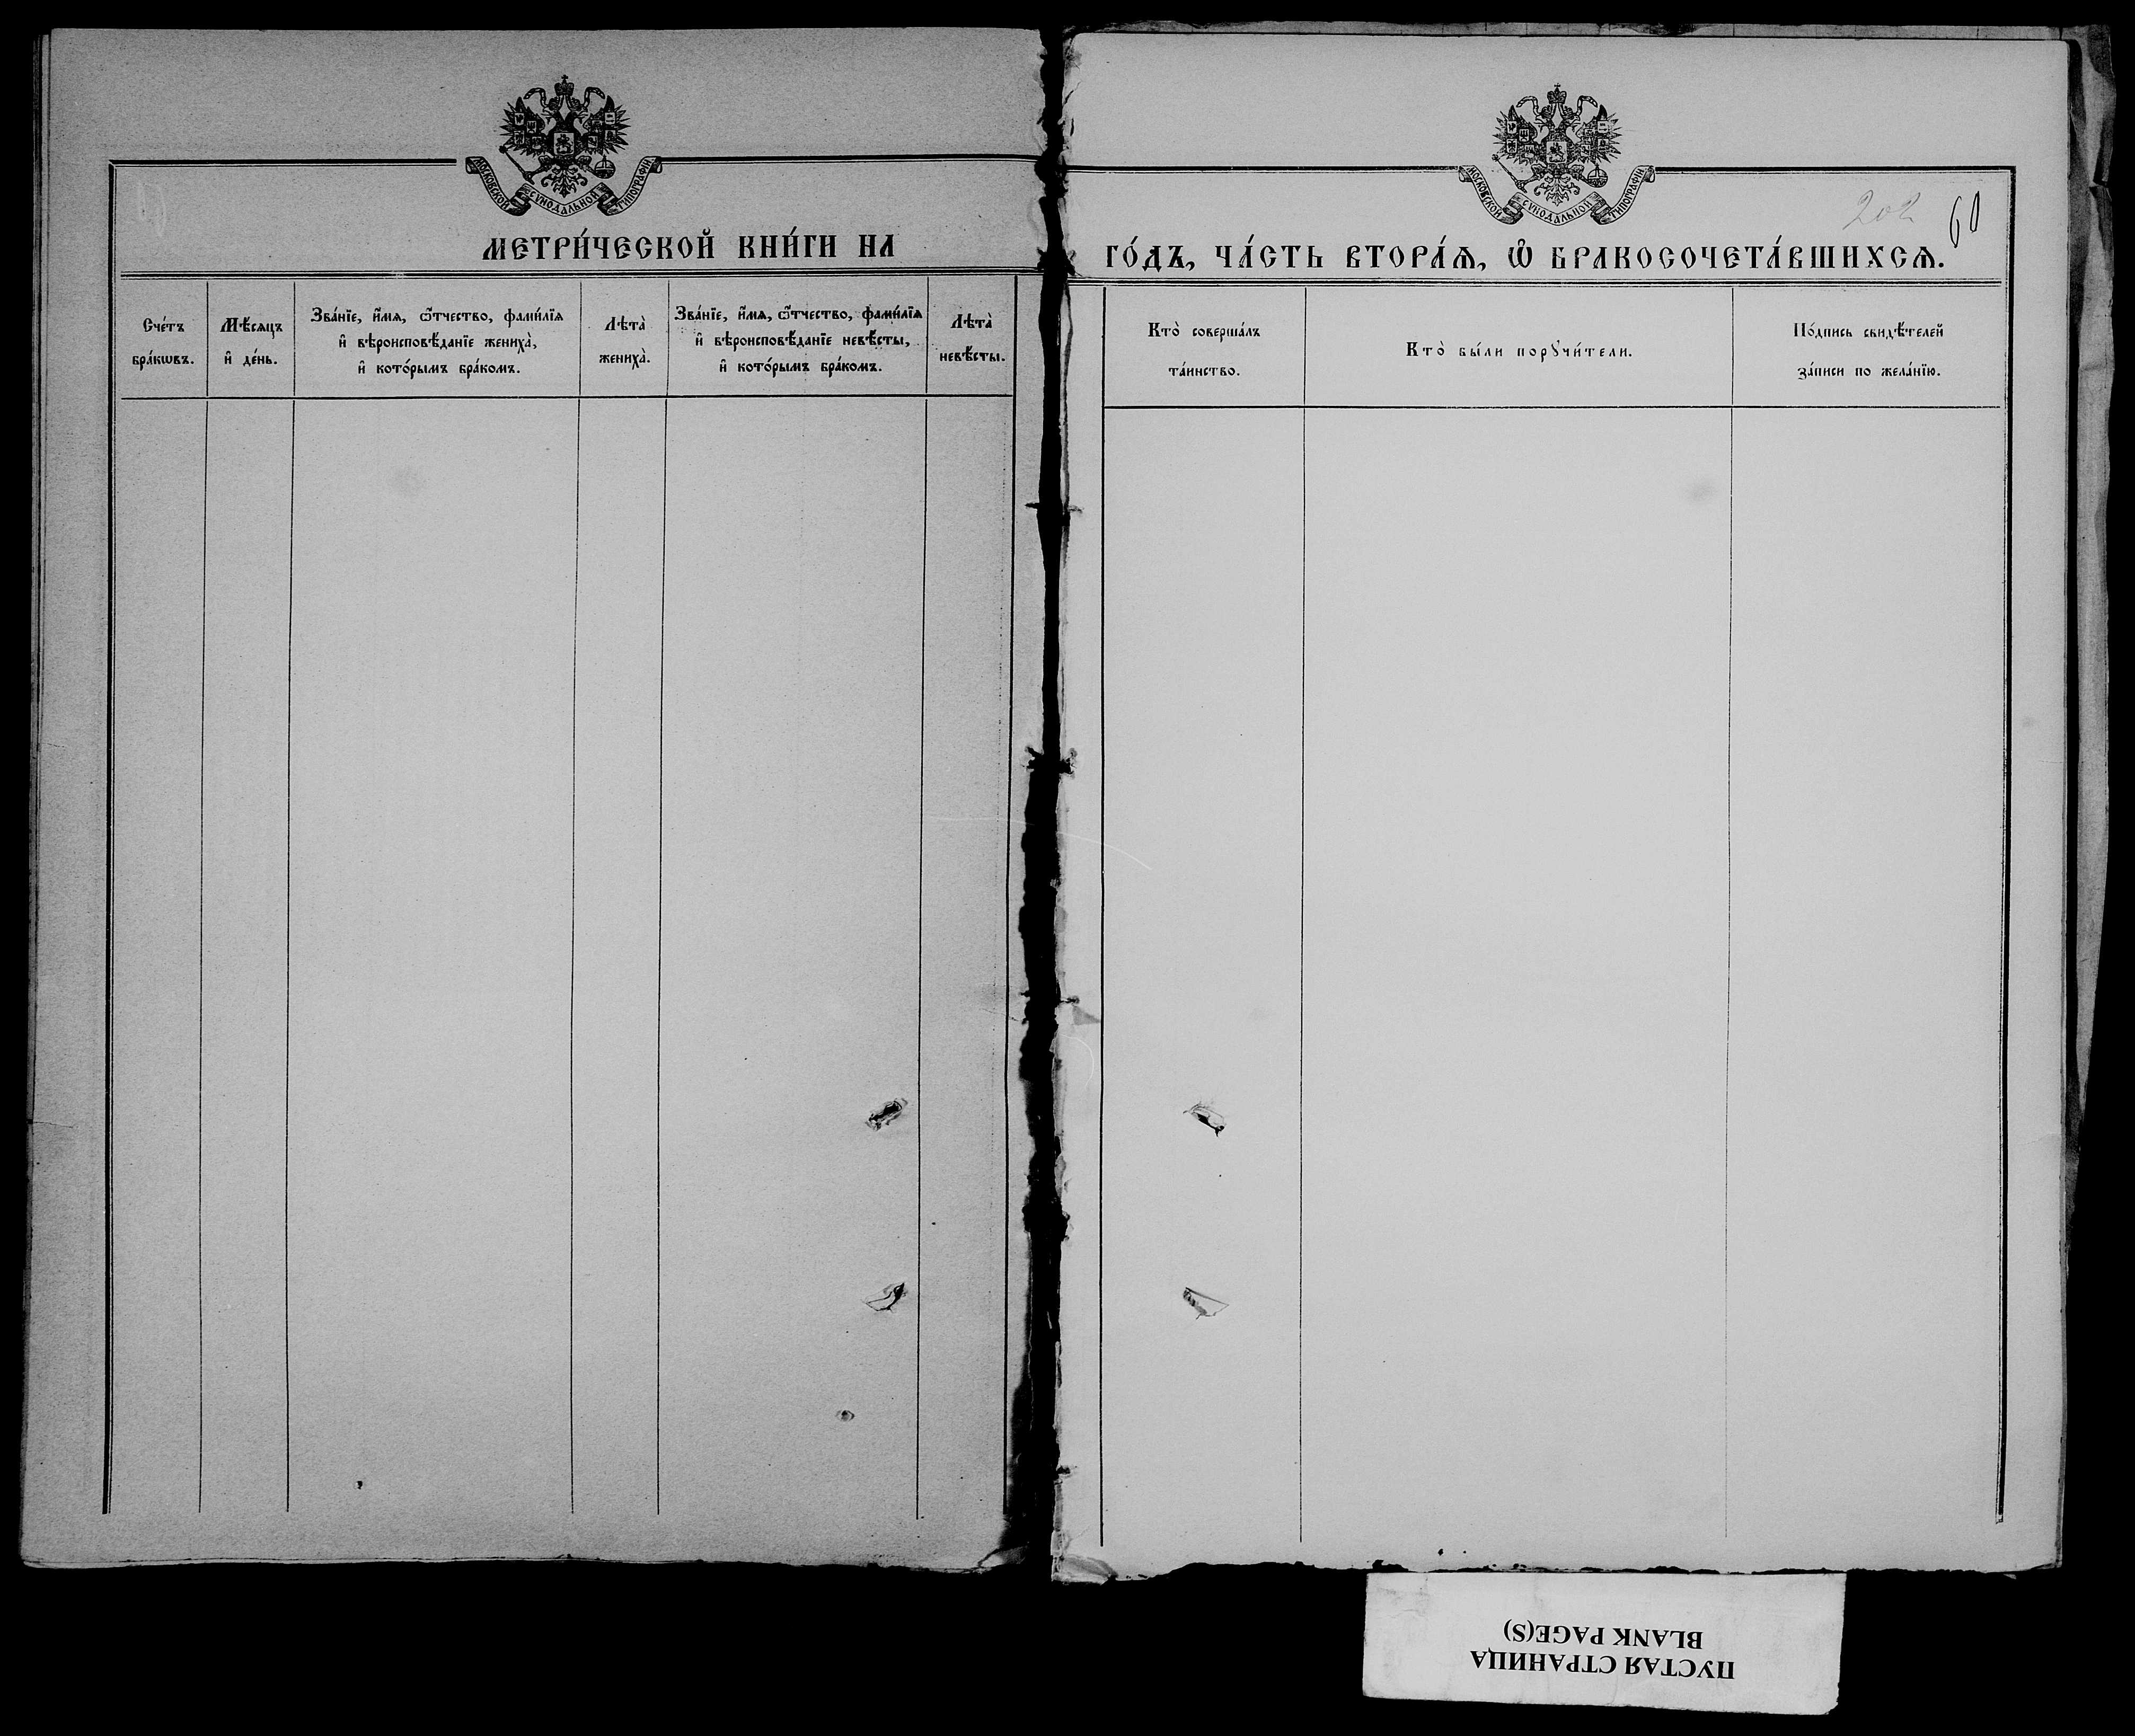 МОСКОВСКОЙ СѴНОДАЛЬНОЙ ТИПОГРАФІИ
МЕТРИ́ЧЕСКОЙ КНИ́ГИ НА
Сче́тъ
бра́кѡвъ.
Мѣ́сяцъ
и҆ де́нь.
Зва́нїе, и҆́мѧ, ѻ҆́тчество, фами́лїѧ
и҆ вѣроисповѣ́данїе жениха̀,
и҆ кото́рымъ бра́комъ.
Лѣта̀
жениха̀.
Зва́нїе, и҆́мѧ, ѻ҆́тчество, фами́лїѧ
и҆ вѣроисповѣ́данїе невѣ́сты,
и҆ кото́рымъ бра́комъ.
Лѣта̀
невѣ́сты.
МОСКОВСКОЙ СѴНОДАЛЬНОЙ ТИПОГРАФІИ
202 60
ГО́ДЪ, ЧА́СТЬ ВТОРА́Ѧ, Ѡ҆ БРАКОСОЧЕТА́ВШИХСѦ.
Кто̀ соверша́лъ
та́инство.
Кто̀ бы́ли порꙋчи́тели.
По́дпись свидѣ́телей
за́писи по жела́нїю.
ПУСТАЯ СТРАНИЦА
BLANK PAGE(S)